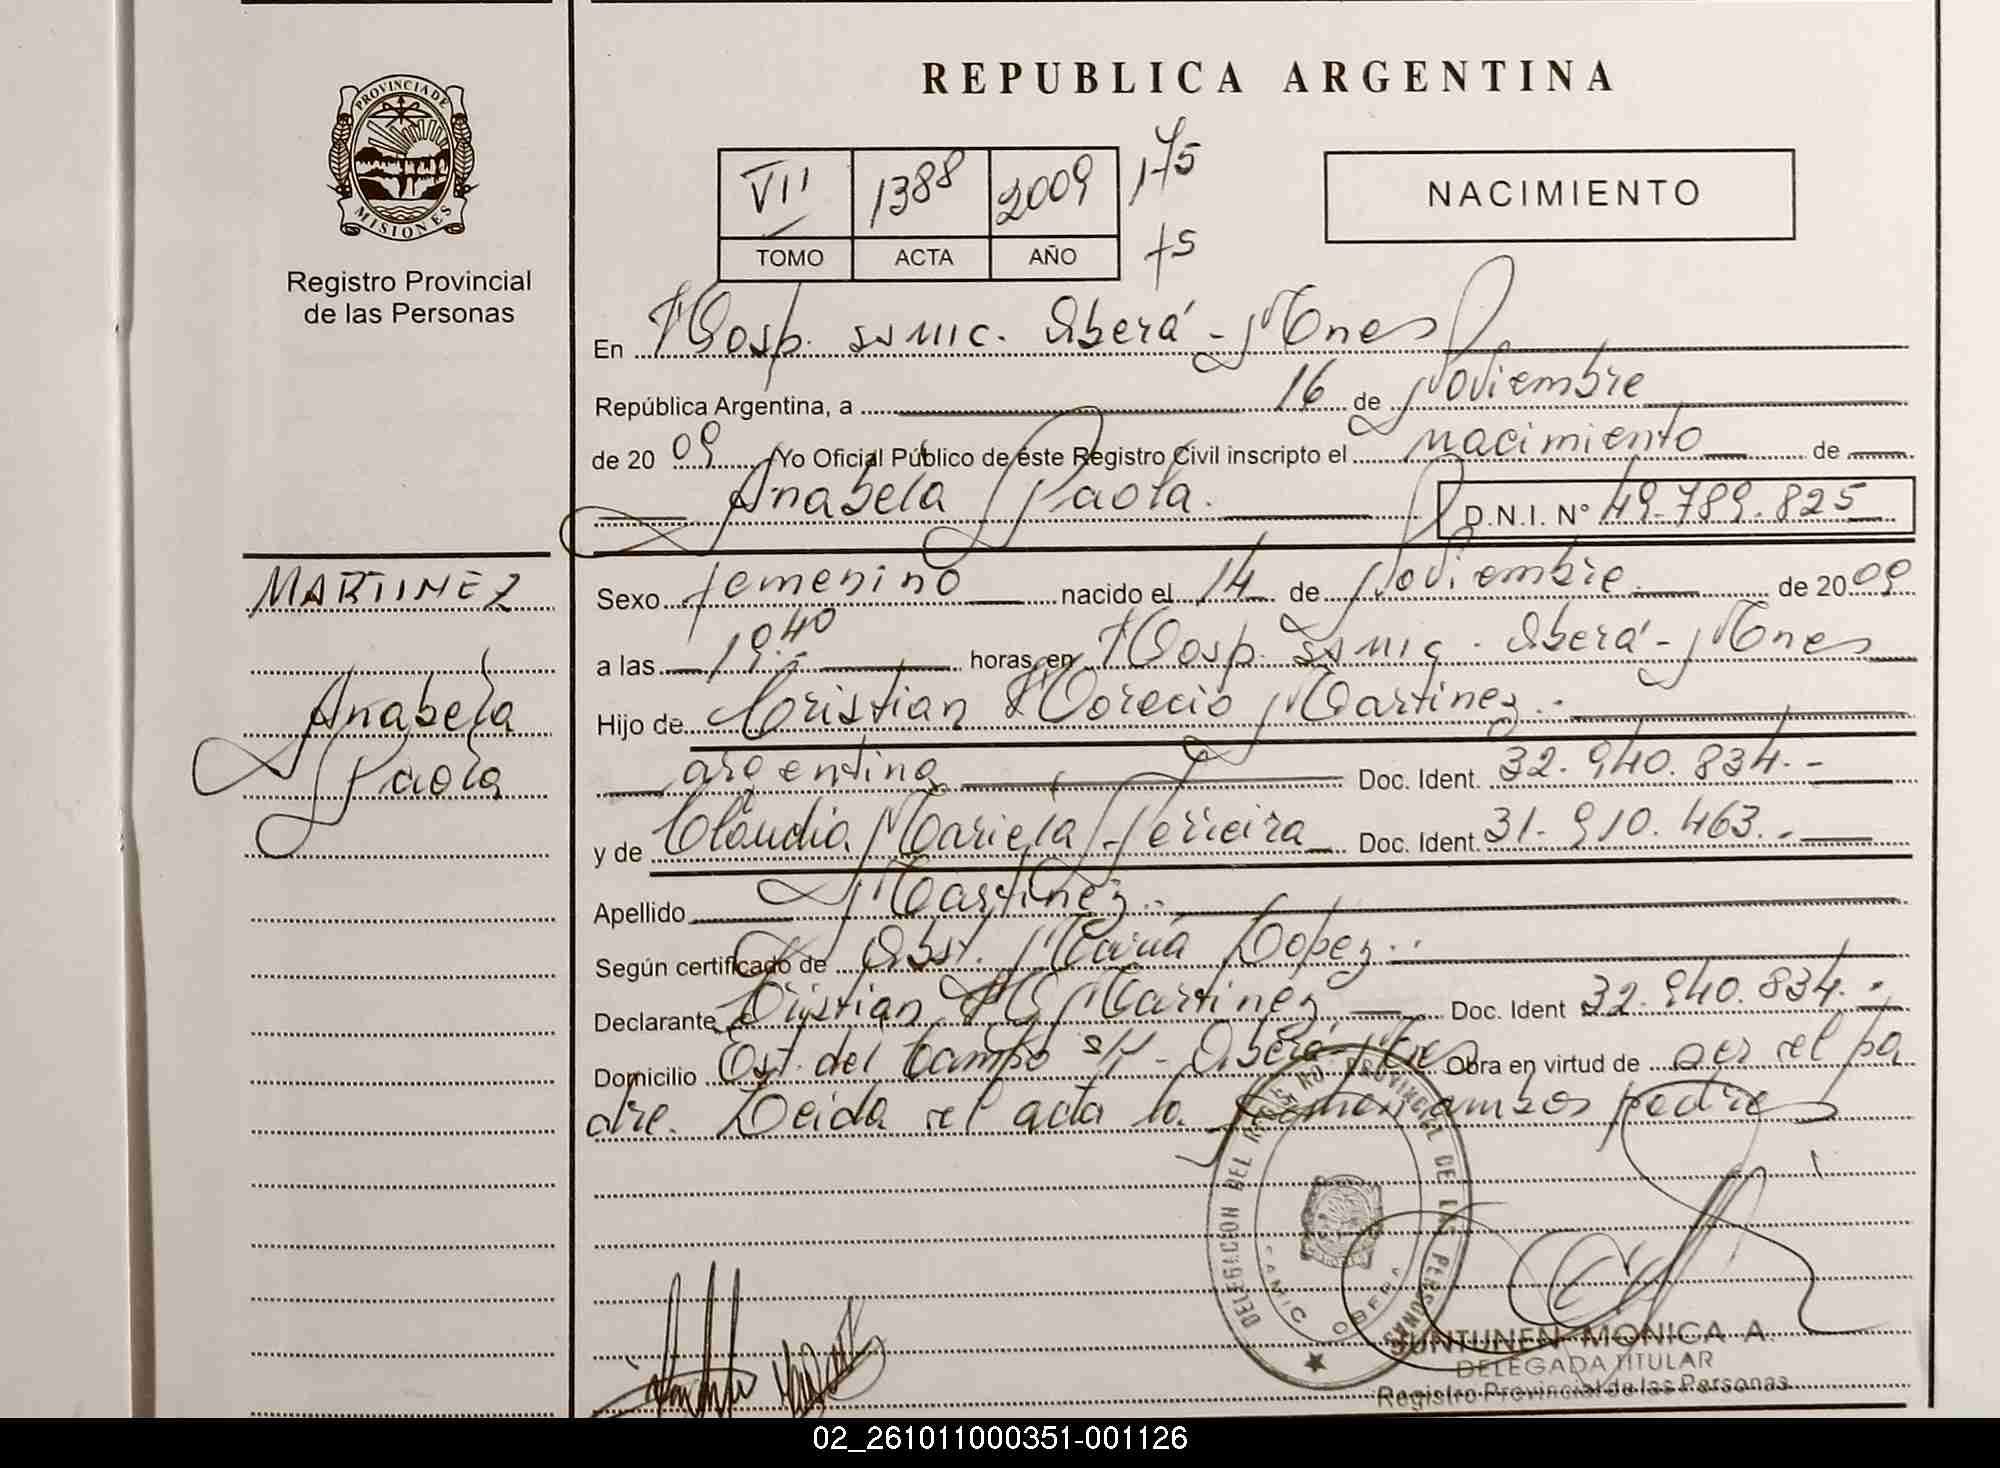 REPUBLICA ARGENTINA
PROVINCIA DE
MISIONES
Registro Provincial
de las Personas
VII 1388 2009 175
TOMO ACTA AÑO 75
NACIMIENTO
En Hosp. ssmic. Oberá - Mnes
República Argentina, a 16 de Noviembre
de 2009 Yo Oficial Público de éste Registro Civil inscripto el nacimiento de
Anabela Paola. D.N.I. Nº 49.789.825
MARTINEZ
Anabela
Paola
Sexo femenino nacido el 14 de Noviembre de 2009
a las 19.40 horas, en Hosp. ssmic. Oberá - Mnes
Hijo de Cristian Horacio Martinez.-
argentina Doc. Ident. 32.940.834.-
y de Claudia Mariela Ferreira Doc. Ident. 31.910.463.-
Apellido Martinez.-
Según certificado de Obst. Maria Lopez.-
Declarante Cristian H Martinez Doc. Ident 32.940.834.-
Domicilio Est. del Campo s/ - Oberá - Mnes Obra en virtud de ser el pa
dre. Leida el acta la firman ambos padres
DELEGACION DEL REGISTRO PROVINCIAL DE LAS PERSONAS
SAMIC OBERA
SUNTUNEN MONICA A.
DELEGADA TITULAR
Registro Provincial de las Personas
02_261011000351-001126